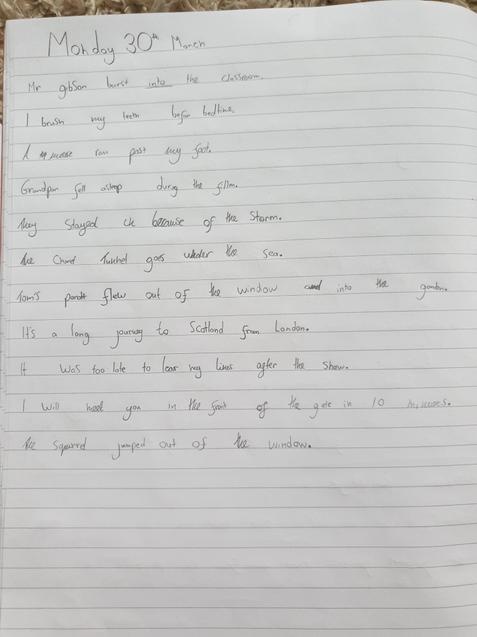 Monday 30th March
Mr gibson burst into the classroom.
I brush my teeth before bedtime.
A mouse ran past my foot.
Grandpa fell asleep during the film.
They stayed in because of the Storm.
the Tunnel goes under the sea.
Tom's flew out of the window and into the garden.
It's a long journey to Scotland from London.
It was too late to lear my lines after the Show.
I will meet you in the front of the gate in 10 minutes.
the jumped out of the window.